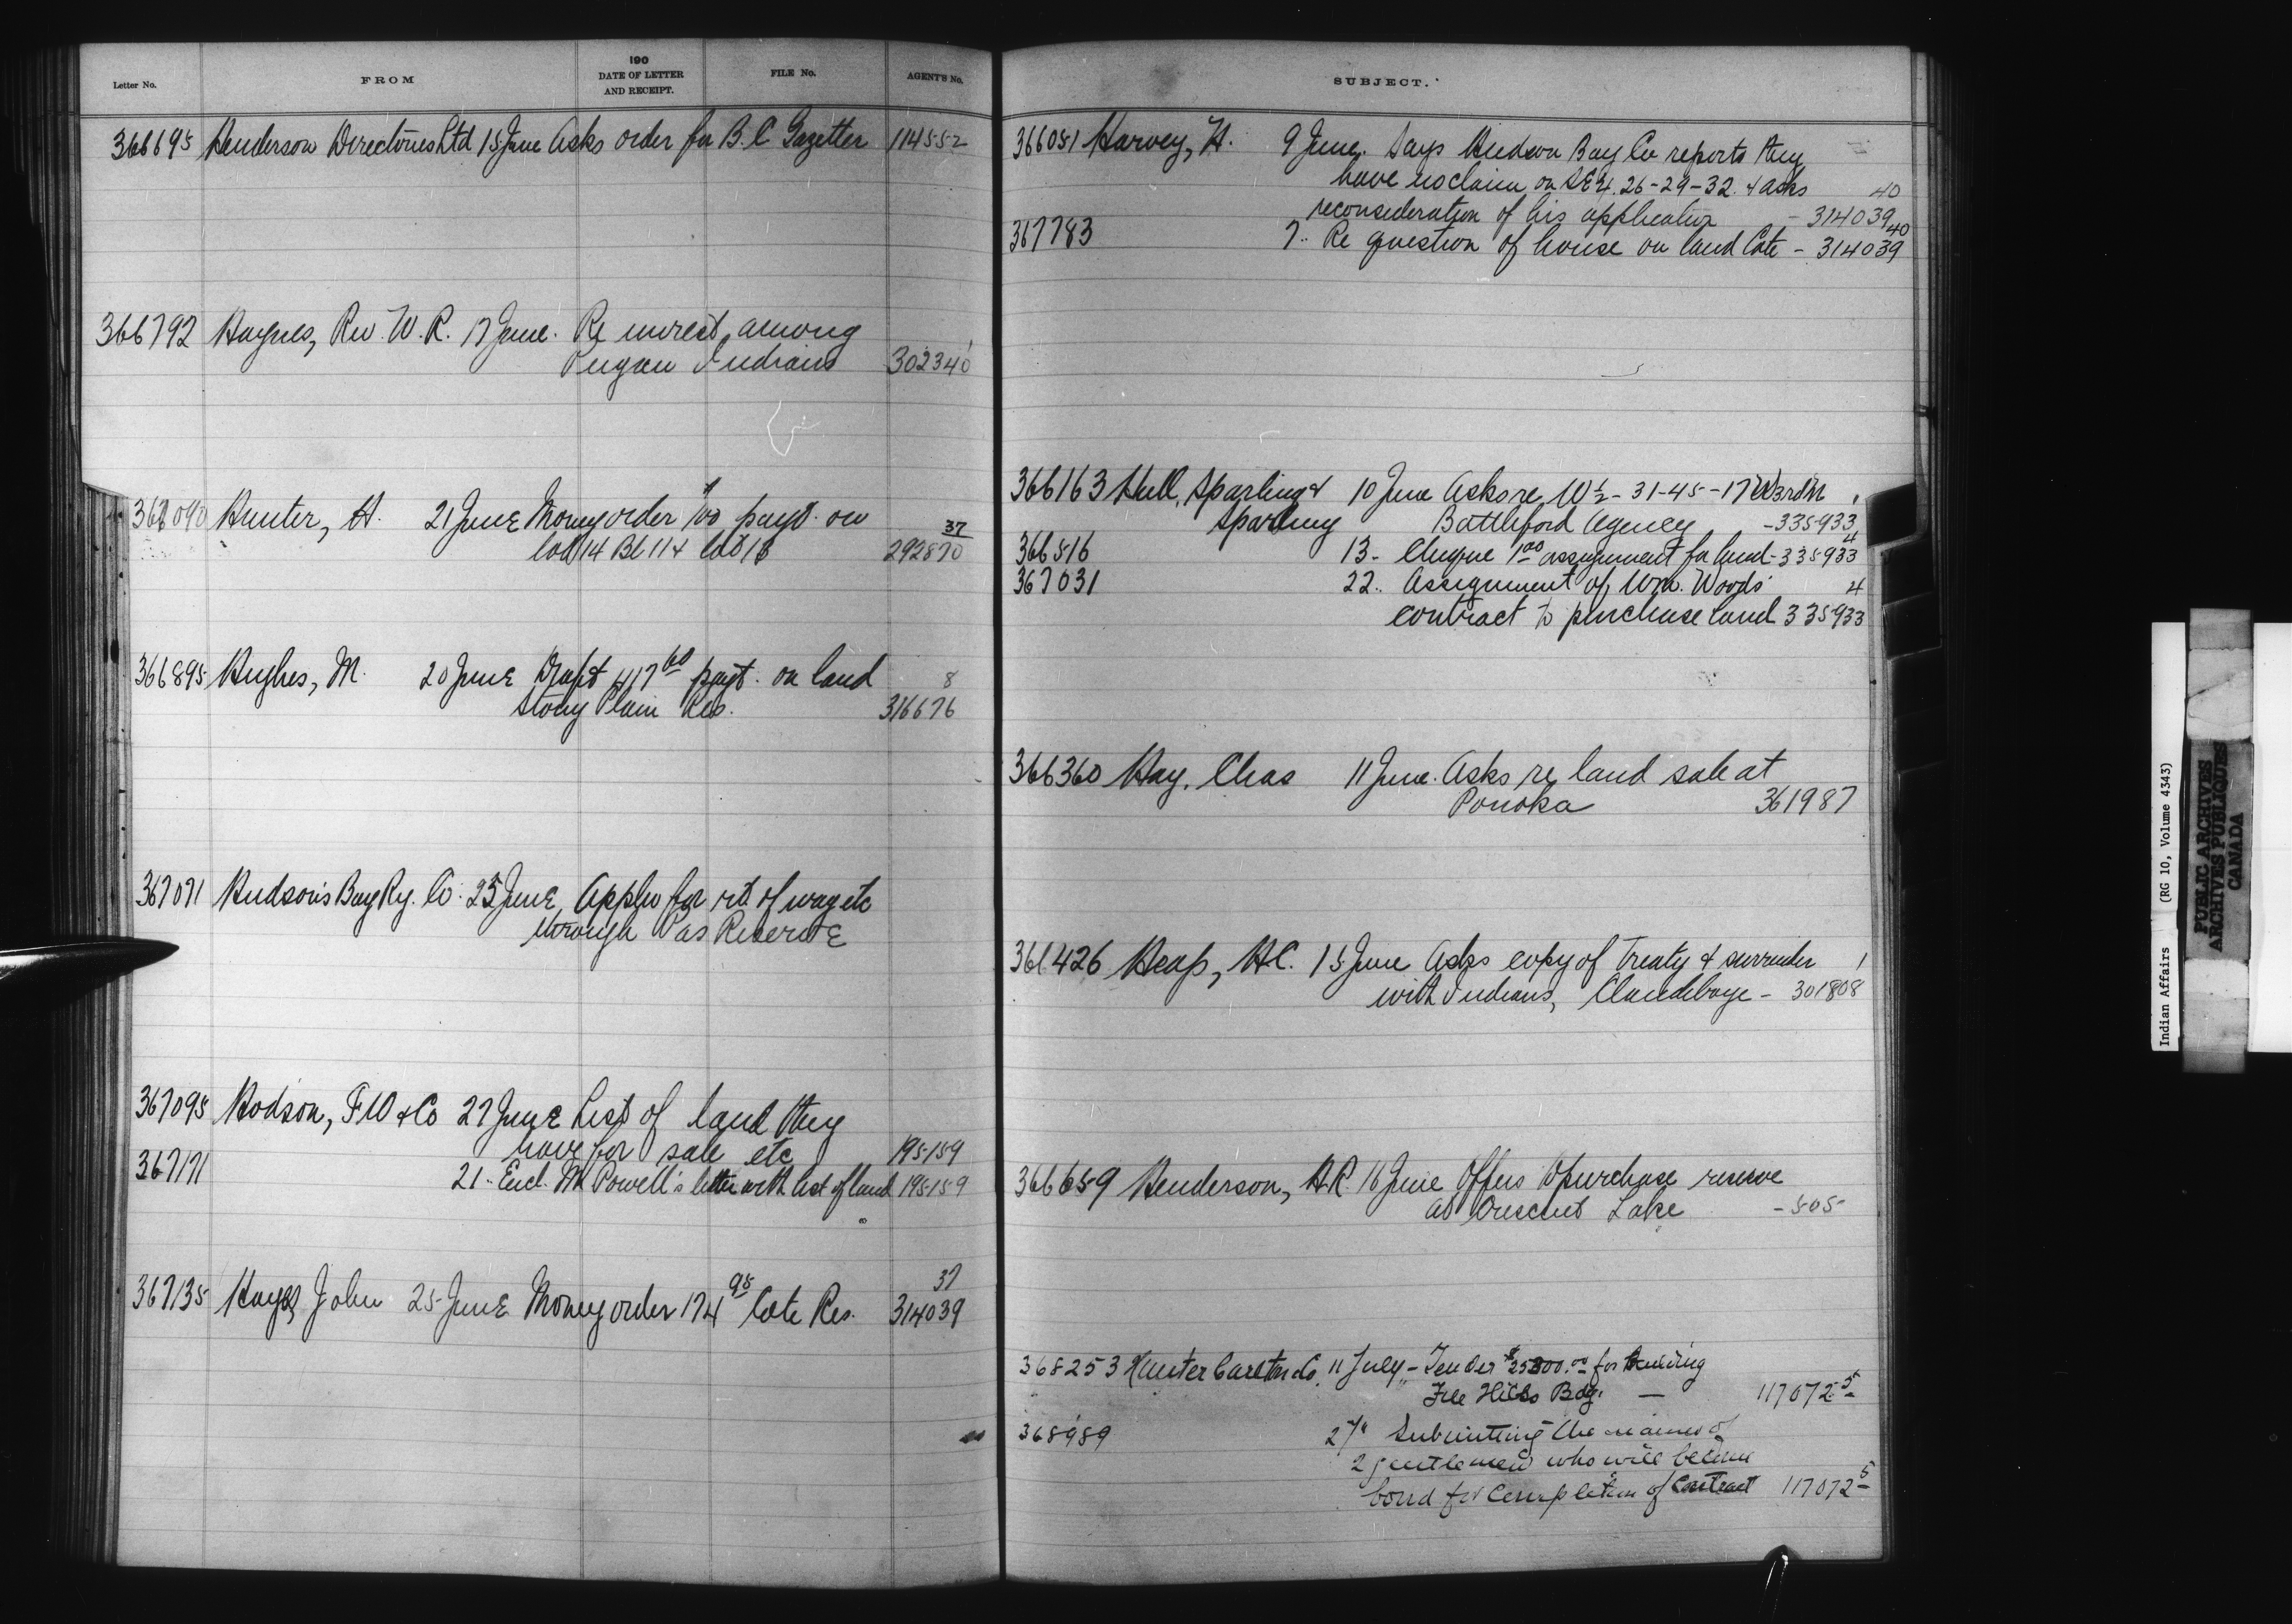 Letter No. FROM 190 DATE OF LETTER AND RECEIPT. FILE No. AGENT'S No.
366695 Henderson Directories Ltd 15 June Asks order for B.C. Gazetter 114552
366792 Haynes, Rev. W. R. 17 June. Re unrest among
Peigan Indians 302340 1
367090 Hunter, H. 21 June Money order payt. on 37
lot 14 Bl 11 + lot 18 292870
366895 Hughes, M. 20 June Draft 417 60 payt. on land 8
Stony Plain Res. 316676
367071 Hudson's Bay Ry. Co. 25 June Appln for rt. of way etc
through Pas Reserve
367095 Hodson, F W & Co 27 June List of land they
have for sale etc 195159
367171 21 .. Encl. Mr Powell's letter with list of land 195159
367135 Hayes, John 25 June Money order 174 95 Cote Res. 37
314039
SUBJECT.
366051 Harvey, H. 9 June. Says Hudson Bay Co reports they
have no claim on SE 1/4. 26-29-32. & asks 40
reconsideration of his application - 314039
367783 7 .. Re question of house on land Cote - 314039 40
366163 Hull, Sparling & 10 June Asks re W 1/2 - 31-45-17 W 3rd M
Sparling Battleford Agency - 335933
366516 13 - Cheque 1 00 assignment for land - 335933 4
367031 22 .. Assignment of Wm. Woods' 4
contract to purchase land 335933
366360 Hay, Chas 11 June. Asks re land sale at
Ponoka 361987
366426 Heap, H.C. 15 June Asks copy of Treaty & surrender 1
with Indians, Clandeboye - 301808
366659 Henderson, H.R. 16 June Offers to purchase reserve
at Crescent Lake - 505
368253 Hunter Carleton Co. 11 July - Tender $25800.00 for building
File Hills Bdg. — 117072 5
368989 27 " Submitting the names of
2 gentlemen who will become
bond for completion of Contract 117072 5
Indian Affairs (RG 10, Volume 4343)
PUBLIC ARCHIVES
ARCHIVES PUBLIQUES
CANADA